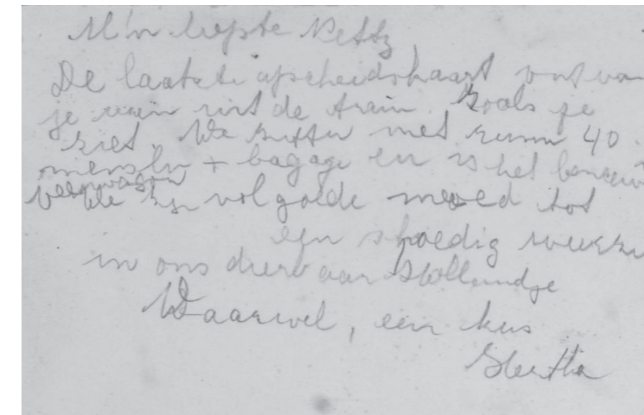 M'n liefste Netty
De laatste afscheidskaart ontvan
je uit de train. Zoals je
ziet. We zitten met ruim 40
menschen + bagage en is het benauw
beestwagon
We zijn vol goede moed tot
een spoedig weerzi
in ons dierbaar Hollandje
Vaarwel, een kus
Hertha